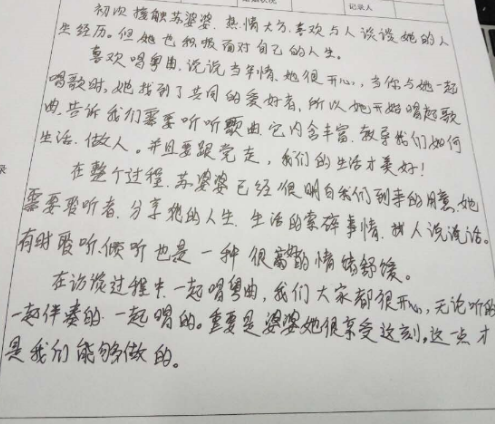 记录人
初次接触苏婆婆，热情大方，喜欢与人谈谈她的人
生经历。但她也积极面对自己的人生。
喜欢唱粤曲，说说当年情，她很开心，当你与她一起
唱歌时，她找到了共同的爱好者，所以她开始唱起歌
曲，告诉我们需要听听歌曲，它内含丰富，教导我们如何
生活、做人。并且要跟党走，我们的生活才美好！
在整个过程，苏婆婆已经很明白我们到来的用意，她
需要聆听者，分享她的人生，生活的琐碎事情，找人说说话。
有时聆听、倾听也是一种很高的情绪舒缓。
在访谈过程中，一起唱粤曲，我们大家都很开心，无论听的
一起伴奏的，一起唱的。重要是婆婆她很享受这刻，这一点才
是我们能够做的。
录